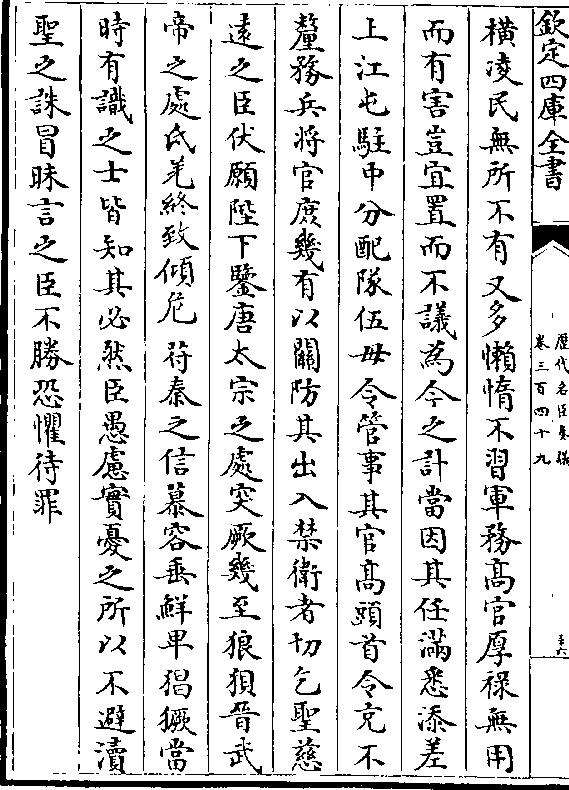 欽定四庫全書
歷代名臣奏議
卷三百四十九
橫凌民無所不有又多懶惰不習軍務髙官厚禄無用
而有害豈宜置而不議為今之計當因其任滿悉添差
上江屯駐中分配隊伍毋令管事其官髙頭首令充不
釐務兵将官庶幾有以關防其出入禁衛者切乞聖慈
逺之臣伏願陛下鑒唐太宗之處突厥幾至狼狽晉武
帝之處氐羌終致傾危苻秦之信慕容垂鮮卑猖獗當
時有識之士皆知其必然臣愚慮實憂之所以不避瀆
聖之誅冒昧言之臣不勝恐懼待罪